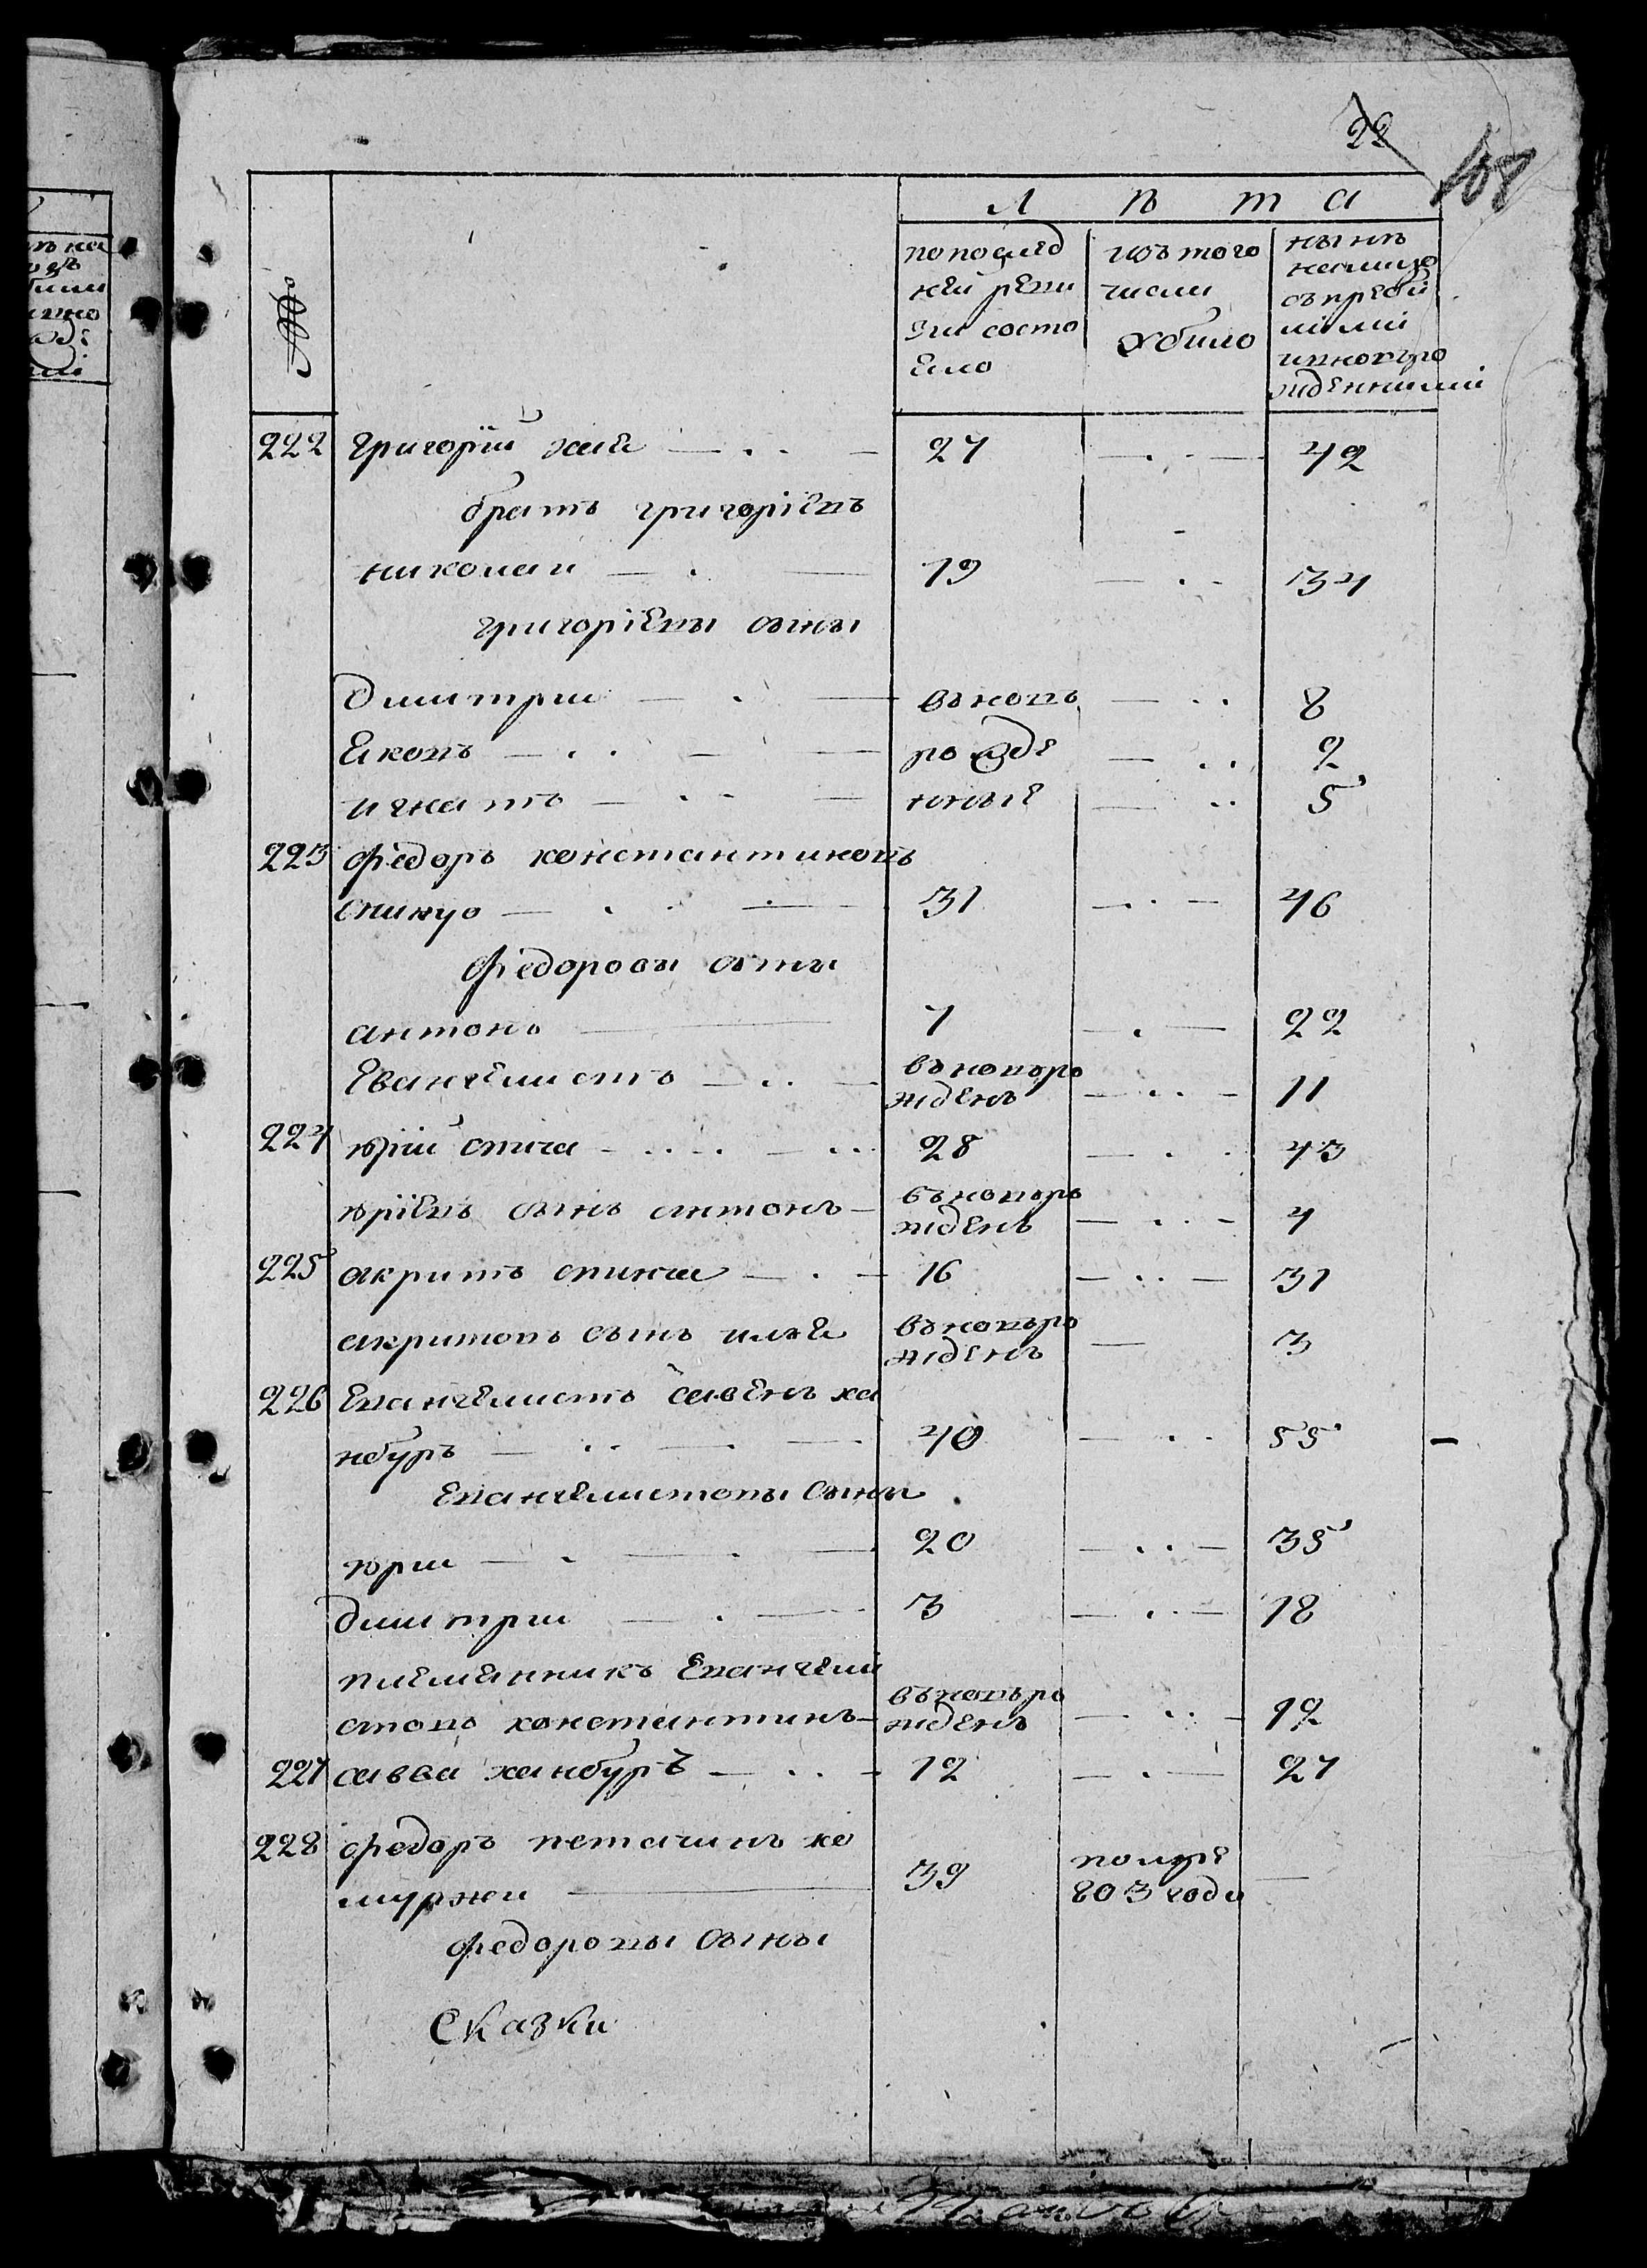 22
108
Л ѣ т а
№
по послед
ней реви
зіи состо
ело
изъ того
числа
убыло
нынѣ
на лицо
съ прибы
лыми
и вновъро
жденными
222 григорій хаѥ — . . — 27 — . . — 42
братъ григоріевъ
николаи — . — 19 — . - 34
григоріевы сыны
дмитрии — . — вновъ — . . 8
ековъ — . . — — рожде — . . 9
игнатъ — . . — нные — . . 5
223 федоръ константиновъ
спинуо — . . — 31 — . . — 46
федоровы сыны
антонъ — 7 — . — 22
Евангелистъ — . . — вновъро
жденъ — . . - 11
224 юрій спича - . . . . — . . 28 — . . 43
юріевъ сынъ антонъ - вновъро
жденъ — . . - 4
225 акритъ спинча — . — 16 — . . — 31
акритовъ сынъ илѣя вновъро
жденъ — 3
226 Евангелистъ савенъ ха
нбуръ — . . — . — 40 — . . 55
Евангелистовы сыны
юрии — . — . — 20 — . . — 35
дмитрии — . — 3 — . . — 18
племянникъ Евангели
стовъ константинъ - вновъро
жденъ — . . - 12
227 савва ханбуръ — . . - 12 — . — 27
228 федоръ петачинъ ко
муржи — 39 помре
803 году —
федоровы сыны
Сказки